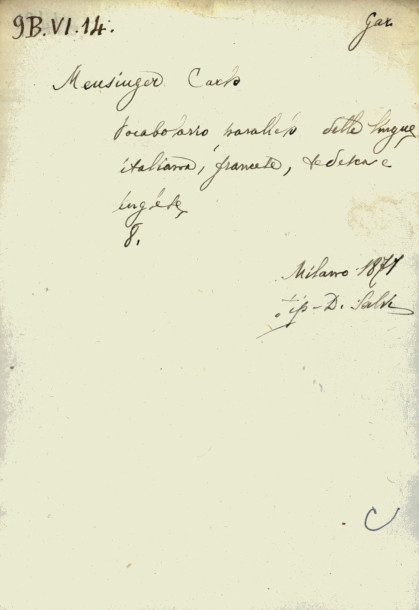 9B.VI.14.
Gar
Mensinger Carlo
Vocabolario parallelo delle lingue
italiana, francese, tedesca e
inglese
8.
Milano 1877
Tip. D. Salvi
C